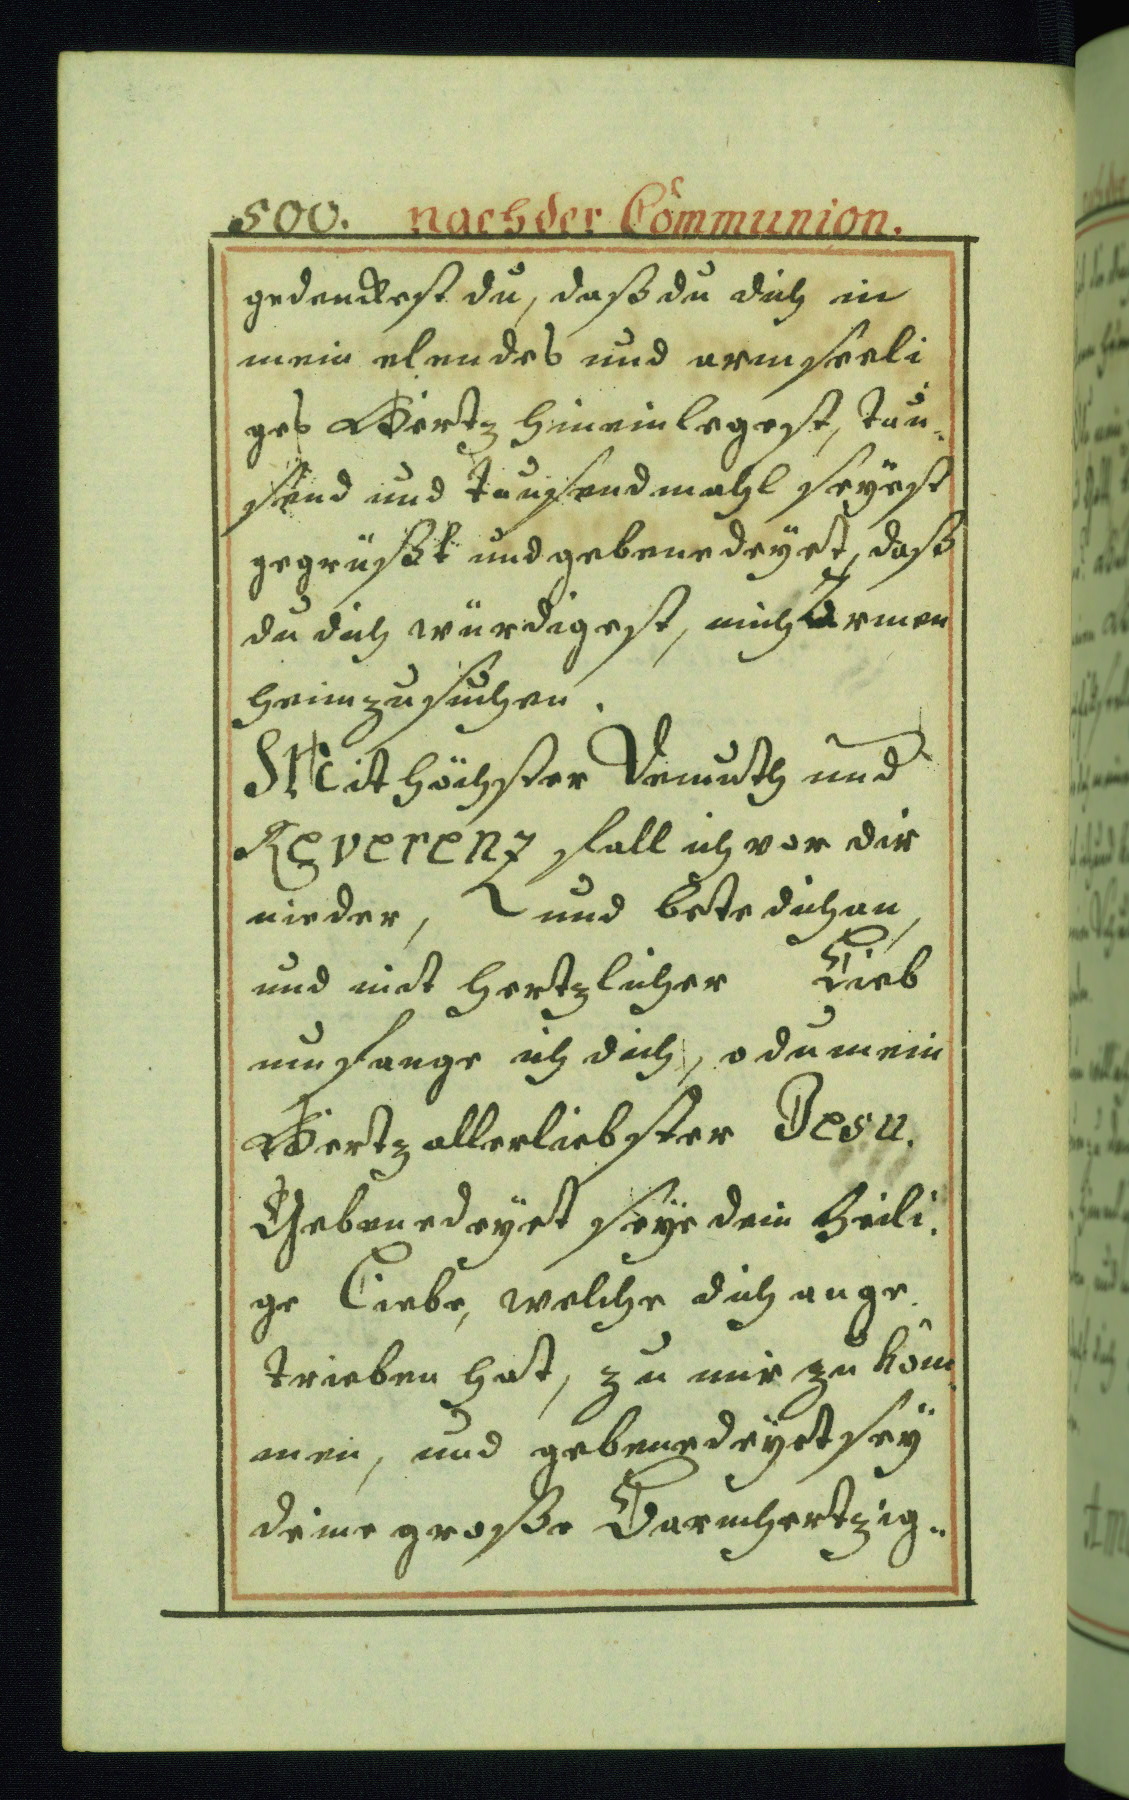 500. nach der Communion.
gedenckest du, daß du dich in
mein elendes und armseeli
ges Hertz hineinlegest, tau„
send und tausendmahl seyest
gegrüßt und gebenedeyet, daß
du dich würdigest, mich Armen
heimzusuchen.
Mit höchster Demuth und
Reverenz fall ich vor dir
nieder, und bete dich an,
und mit hertzlicher Lieb
umfange ich dich, o du mein
Hertzallerliebster Jesu.
Gebenedeyet seye dein heili„
ge Liebe, welche dich ange„
trieben hat, zu mir zu kom„
men, und gebenedeyet sey
deine große Barmhertzig„